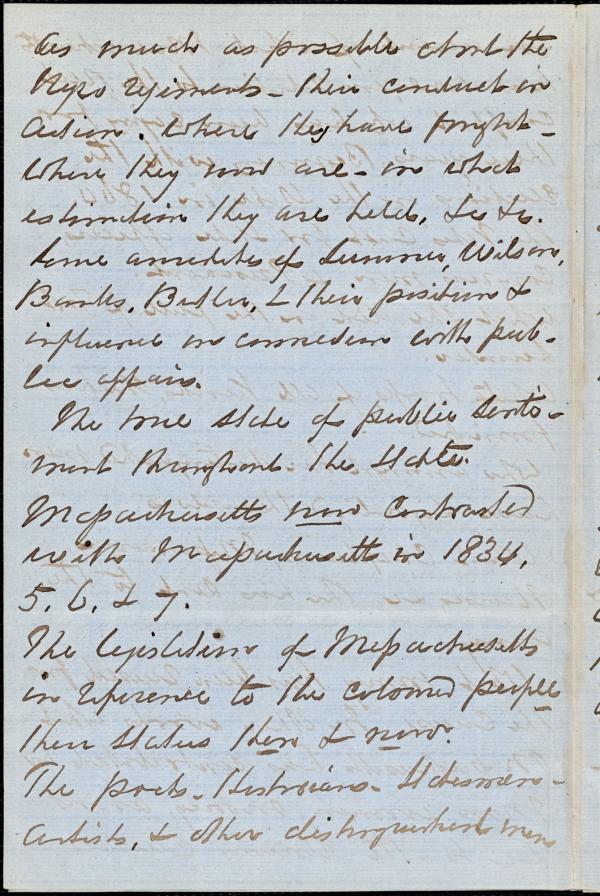 As much as possible about the
Negro regiments - their conduct in
action. Where they have fought -
where they now are - in what
estimation they are held, &c &c.
Some anecdotes of Sumner, Wilson,
Banks, Butler, & their position &
influence in connection with pub-
lic affairs.
The true state of public senti-
ment throughout the States.
Massachusetts now contrasted
with Massachusetts in 1834,
5, 6, & 7.
The legislation of Massachusetts
in reference to the colored people
their status then & now.
The poets - Historians - Statesmen -
artists, & other distinguished men